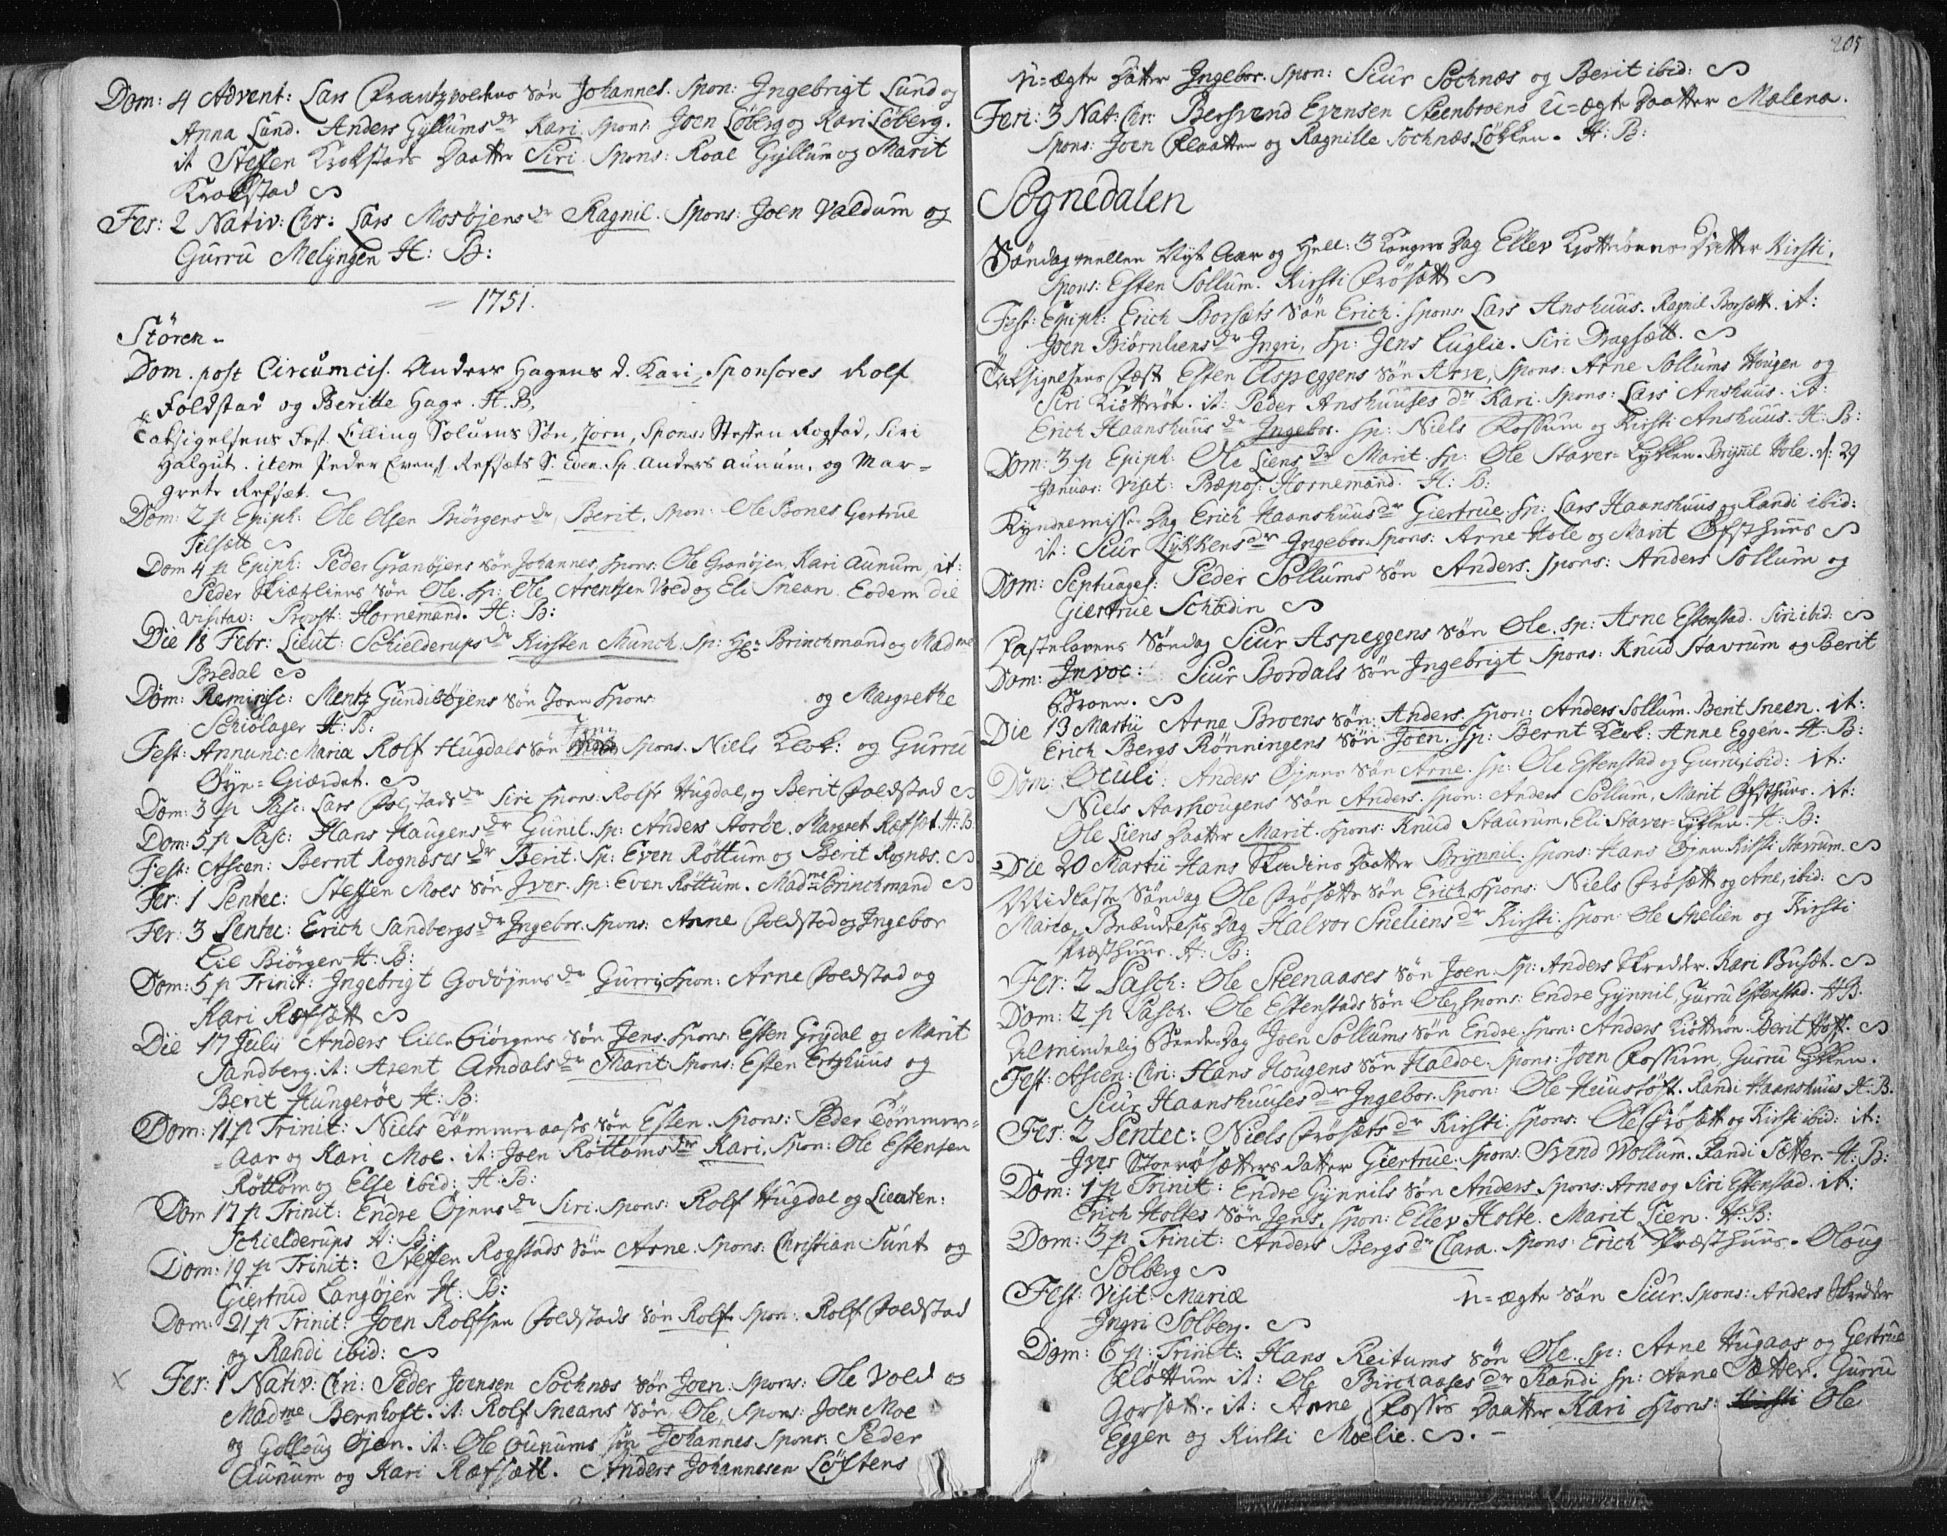 Dom: 4 Advent: Lars Frantzvoldens Søn Johannes. Spon: Ingebrigt Lund og
Anna Lund. Anders Gyllums dr Kari. Spons: Joen Løberg og Kari Løberg.
it Steffen Krokstads Daatter Siri. Spons: Roal Gyllum og Marit
Krokstad
Fer: 2 Nativ: Chr: Lars Mosøjens dr Ragnil. Spons: Joen Valdum og
Gurru Melyngen H: B:
1751.
Støren.
Dom. post Circumcis. Anders Hagens d. Kari, Sponsores Rolf
Foldstad og Beritte Hage. H. B.
Taksigelsens Fest. Elling Solums Søn, Jorn, Spons: Steffen Rogstad, Siri
Halgut. item Peder Evens Refsets S. Even. Sp. Anders Aunum. og Mar-
grete Refset.
Dom: 2 p Epiph: Ole Olsen Biørgens dr, Berit. Spon: Ole Bones Gertrue
Filsætt
Dom 4 p Epiph: Peder Granøjens Søn Johannes, Spons: Ole Granøjen, Kari Aunum, it:
Peder Kiæxliens Søn Ole. Sp: Ole Arentsen Vold og Eli Snean. Eodem die
visitav: Provst: Hornemand. H: B:
Die 18 Febr: Lieut: Schielderups dr Kirsten Munch. Sp: Hr: Brinchmand og Madme
Bredal
Dom: Reminisc: Mentz Gundersøjens Søn Joen Spons og Margrethe
Schiølager H: B:
Fest: Annunc: Maria Rolf Hugdals Søn Jens Spons. Niels Klok: og Gurru
Øyn=Giærdet.
Dom: 3 p Pasc: Lars Foldstads dr Siri Spons: Rolf Hugdal, og Berit Foldstad
Dom: 5 p Pasc: Hans Haugens dr Gunil. Sp: Anders Storøe. Margret Ræfset. H: B
Fest: Ascen: Bernt Rognæses dr Berit. Sp: Even Røttum og Berit Rognæs.
Fer: 1 Pentec: Steffen Moes Søn Iver. Sp: Even Røttum. Madme Brinchmand
Fer: 3 Pentec: Erich Sandbergs dr Ingebor. Spons: Anne Foldstad og Ingebor
Lil Biørgen H: B:
Dom: 5 p Trinit: Ingebrigt Godøjens dr Gurri Spon: Arne Foldstad og
Kari Ræfsætt
Die 17 Julij Anders Lillebiørgens Søn Jens. Spons: Esten Grydal og Marit
Sandberg. it: Arent Amdals dr Marit Spons: Esten Ertzhuus og
Berit Hungerøe H: B:
Dom: 11 p Trinit: Niels Tømmeraases Søn Esten. Spons: Peder Tømmer=
=Aar og Kari Moe. it: Joen Røttoms dr Kari. Spon: Ole Estensen
Røttom og Else ibid: H: B:
Dom 17 p Trinit: Endre Øjens dr Siri. Spons: Rolf Hugdal og Lieuten:
Schielderups H: B:
Dom: 19 p Trinit: Steffen Rogstads Søn Arne. Spons: Christian Sunt og
Giertrud Langøjen H: B:
Dom: 21 p Trinit: Joen Rolfsen Foldstads Søn Rolf Spon: Rolf Foldstad
og Randi ibid:
Fer: 1 Nativ: Chri: Peder Joensen Sochnæs Søn Joen. Spons: Ole Vold og
Madme Bernhoft. it: Rolf Sneans Søn Ole, Spons: Joen Moe
og Golloug Øjen. it: Ole Aunums Søn Johannes. Spons: Peder
Aunum og Kari Ræfsætt. Anders Johannesen Løftens
205
u=ægte Datter Ingebor. Spon: Siur Sochnæs og Berit ibid:
Feri: 3 Nat: Chr: Bersvend Evensen Steenbroens u=ægte Daatter Malena.
Spons: Joen Flaatten og Ragnille Sochnæs Løkken. H: B:
Sognedalen
Søndag mellem Nyt Aar og Hell: 3 Kongers Dag Ellev Kiøttrøens Datter Kirsti.
Spons: Esten Sollum. Kirsti Frøsætt
Fest: Epiph: Erich Borsæts Søn Erich. Spons: Lars Anshuus. Ragnil Borsætt. it:
Joen Biørnliens dr Ingri. Sp: Jens Euglie. Siri Dragsætt.
Taksigelsens Fæst Esten Aspeggens Søn Arne, Spons: Arne Sollums Hougen og
Siri Kiøttrøe. it: Peder Anshuuses dr Kari. Spons: Lars Anshuus. it:
Erich Haanshuus dr Ingebor. Sp: Niels Fossum og Kirsti Anshuus. H: B:
Dom: 3 p Epiph: Ole Liens dr Marit. Sp: Ole Staver=Løkken. Brynnil Hole. d: 29
Januar: Visit: Præpos: Hornemand. H: B:
Kyndelmisse Dag Erich Haanshuus dr Giertrue. Sp: Lars Haanshuus og Randi ibid:
it: Siur Løkkens dr Ingebor. Spons: Arne Hole og Marit Øfsthuus
Dom: Septuages: Peder Sollums Søn Anders. Spons: Anders Sollum og
Giertrue Schadin
Fastelavens Søndag Siur Aspeggens Søn Ole. Sp: Arne Estenstad. Siri ibid:
Dom: Invoc: Siur Bordals Søn Ingebrigt Spons: Knud Stavrum og Berit
Broen.
Die 13 Martii Arne Broens Søn Anders. Spon: Anders Sollum. Berit Sneen. it:
Erich Bergs Rønningens Søn Joen. Sp: Bernt Klok: Anne Eggen. H: B:
Dom: Oculi: Anders Øjens Søn Arne. Sp: Ole Estenstad og Gurru ibid: it:
Niels Aarhougens Søn Anders. Spon: Anders Sollum, Marit Øfsthuus. it:
Ole Liens Daatter Marit. Spons: Knud Staurum, Eli Staver=Løkken. H: B:
Die 20 Martii Hans Skadens Daatter Brynnil. Spons: Hans Øjen Kirsti Stavrum.
Midfaste Søndag Ole Frøsætts Søn Erich. Spons: Niels Frøsætt og Ane, ibid:
Mariæ Bebudelses Dag Halvor Sneliens dr Kirsti. Spon: Ole Snelien og Kirsti
Præsthuus. H: B:
Fer: 2 Pasch: Ole Steenaases Søn Joen. Sp: Anders Skredder. Kari Busæt.
Dom: 2 p Pasch. Ole Estenstads Søn Ole, Spons: Endre Gynnil, Gurru Estenstad. H B.
Almindelig Bede-Dag Joen Sollums Søn Endre. Spon: Anders Kiøttrøe. Berit Hoff.
Fest: Ascen: Chri: Hans Hougens Søn Haldoe. Spons: Joen Fossum, Gurru Løkken.
Siur Haanshuuses dr Ingebor. Spon: Ole Huustøft. Randi Haanshuus H. B.
Fer: 2 Pentec: Niels Frøsæts dr Kirsti. Spons: Ole Frøsætt og Kirsti ibid: it:
Iver Storrøsætters Datter Giertrue. Spons: Svend Wollum. Randi Sætter. H: B:
Dom: 1 p Trinit: Endre Gynnils Søn Anders. Spons: Arne og Siri Estenstad. it:
Erich Holtes Søn Jens, Spon: Ellev Holte. Marit Lien. H: B:
Dom: 3 p Trinit: Anders Bergs dr Clara. Spons: Erich Præsthuus. Oloug
Solberg
Fest: Visit: Mariæ u=ægte Søn Siur. Spons: Anders Skredder
Ingri Solberg.
Dom: 6 p: Trinit: Hans Reitums Søn Ole. Sp: Arne Hugaas og Gertrue
Fløttum it: Ole Birchaases dr Randi Sp: Arne Sætter. Gurru
Gorsætt. it: Arne Fosses Daatter Kari Spons: Ole
Eggen og Kirsti Moelie.